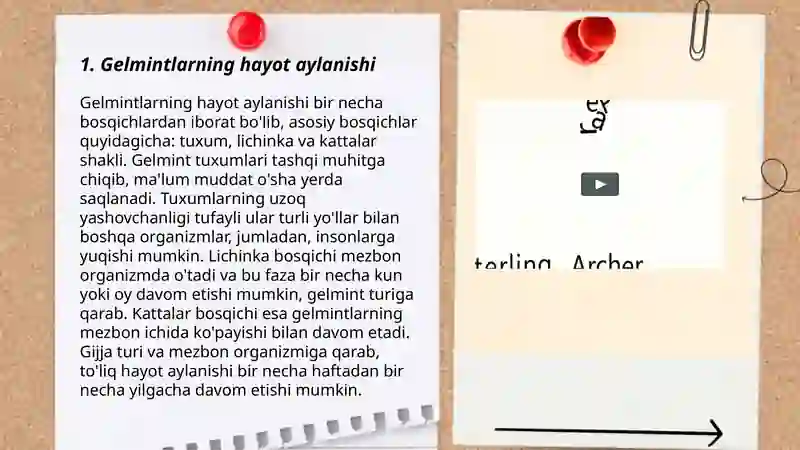 1. Gelmintlarning hayot aylanishi
Gelmintlarning hayot aylanishi bir necha
bosqichlardan iborat bo'lib, asosiy bosqichlar
quyidagicha: tuxum, lichinka va kattalar
shakli. Gelmint tuxumlari tashqi muhitga
chiqib, ma'lum muddat o'sha yerda
saqlanadi. Tuxumlarning uzoq
yashovchanligi tufayli ular turli yo'llar bilan
boshqa organizmlar, jumladan, insonlarga
yuqishi mumkin. Lichinka bosqichi mezbon
organizmda o'tadi va bu faza bir necha kun
yoki oy davom etishi mumkin, gelmint turiga
qarab. Kattalar bosqichi esa gelmintlarning
mezbon ichida ko'payishi bilan davom etadi.
Gijja turi va mezbon organizmiga qarab,
to'liq hayot aylanishi bir necha haftadan bir
necha yilgacha davom etishi mumkin.
terling Archer